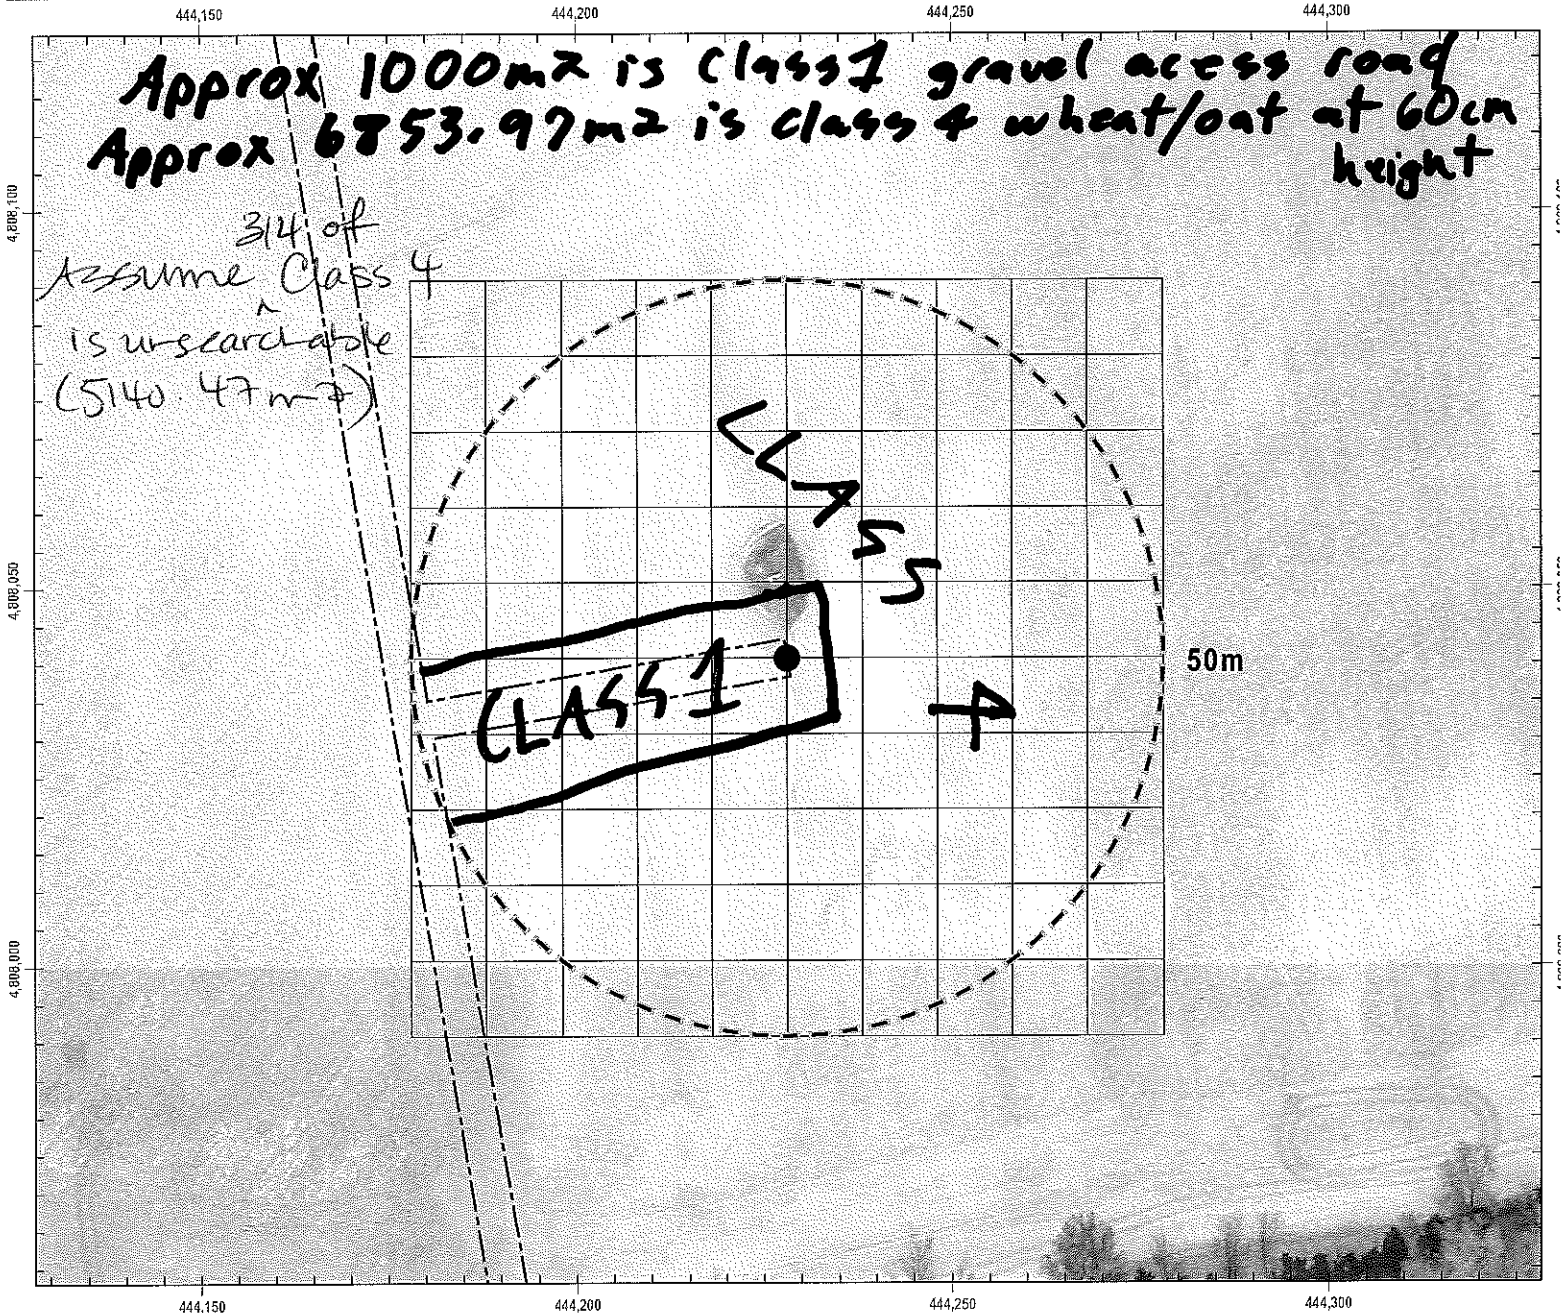 444,150 444,200 444,250 444,300
Approx 1000m2 is Class1 gravel acess road
Approx 6853.97m2 is class 4 wheat/oat at 60cm
height
4,808,100
3/4 of
Assume ^ Class 4
is unsearchable
(5140.47m2)
CLASS
4,808,050
50m
CLASS1
4
4,808,000
444,150 444,200 444,250 444,300